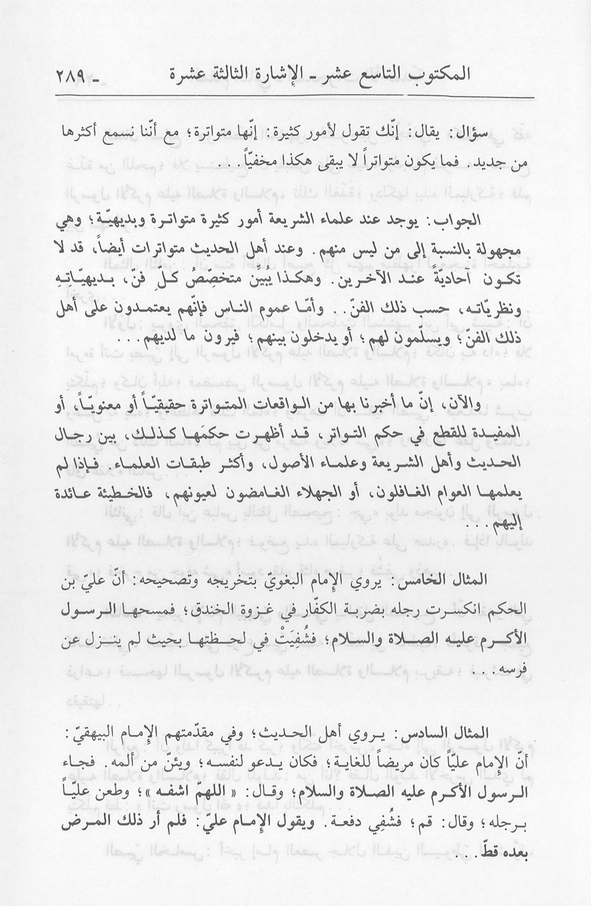 المكتوب التاسع عشر - الإشارة الثالثة عشرة - ٢٨٩
سؤال: يقال: إنّك تقول لأمور كثيرة: إنّها متواترة؛ مع أنّنا نسمع أكثرها
من جديد. فما يكون متواتراً لا يبقى هكذا مخفيّاً...
الجواب: يوجد عند علماء الشريعة أمور كثيرة متواترة وبديهيّة؛ وهي
مجهولة بالنسبة إلى من ليس منهم. وعند أهل الحديث متواترات أيضاً، قد لا
تكون آحاديّةً عند الآخرين. وهكذا يُبيِّن متخصّصُ كلّ فنّ، بديهيّاتِه
ونظريّاتِه، حسب ذلك الفنّ.. وأمّا عموم الناس فإنّهم يعتمدون على أهل
ذلك الفنّ؛ ويسلّمون لهم؛ أو يدخلون بينهم؛ فيرون ما لديهم...
والآن، إنّ ما أخبرنا بها من الواقعات المتواترة حقيقيّاً أو معنويّاً، أو
المفيدة للقطع في حكم التواتر، قد أظهرت حكمَها كذلك، بين رجال
الحديث وأهل الشريعة وعلماء الأصول، وأكثر طبقات العلماء. فإذا لم
يعلمها العوام الغافلون، أو الجهلاء الغامضون لعيونهم، فالخطيئة عائدة
إليهم...
المثال الخامس: يروي الإمام البغويّ بتخريجه وتصحيحه: أنّ عليّ بن
الحكم انكسرت رجله بضربة الكفّار في غزوة الخندق؛ فمسحها الرسول
الأكرم عليه الصلاة والسلام؛ فشُفِيَتْ في لحظتها بحيث لم ينزل عن
فرسه...
المثال السادس: يروي أهل الحديث؛ وفي مقدّمتهم الإمام البيهقيّ:
أنّ الإمام عليّاً كان مريضاً للغاية؛ فكان يدعو لنفسه؛ ويئنّ من ألمه. فجاء
الرسول الأكرم عليه الصلاة والسلام؛ وقال: «اللهمّ اشفه»؛ وطعن عليّاً
برجله؛ وقال: قم؛ فشُفِي دفعة. ويقول الإمام عليّ: فلم أر ذلك المرض
بعده قطّ...